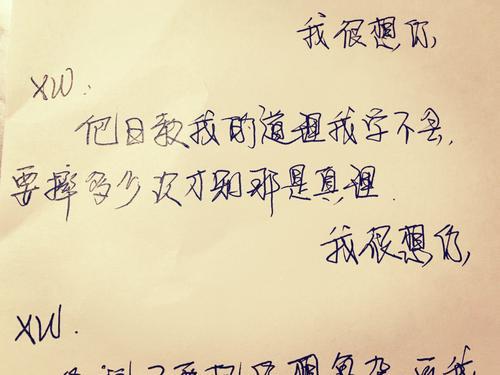 我很想你,
XW.
他日教我的道理我学不会,
要摔多少次才那是真理.
我很想你,
XW.